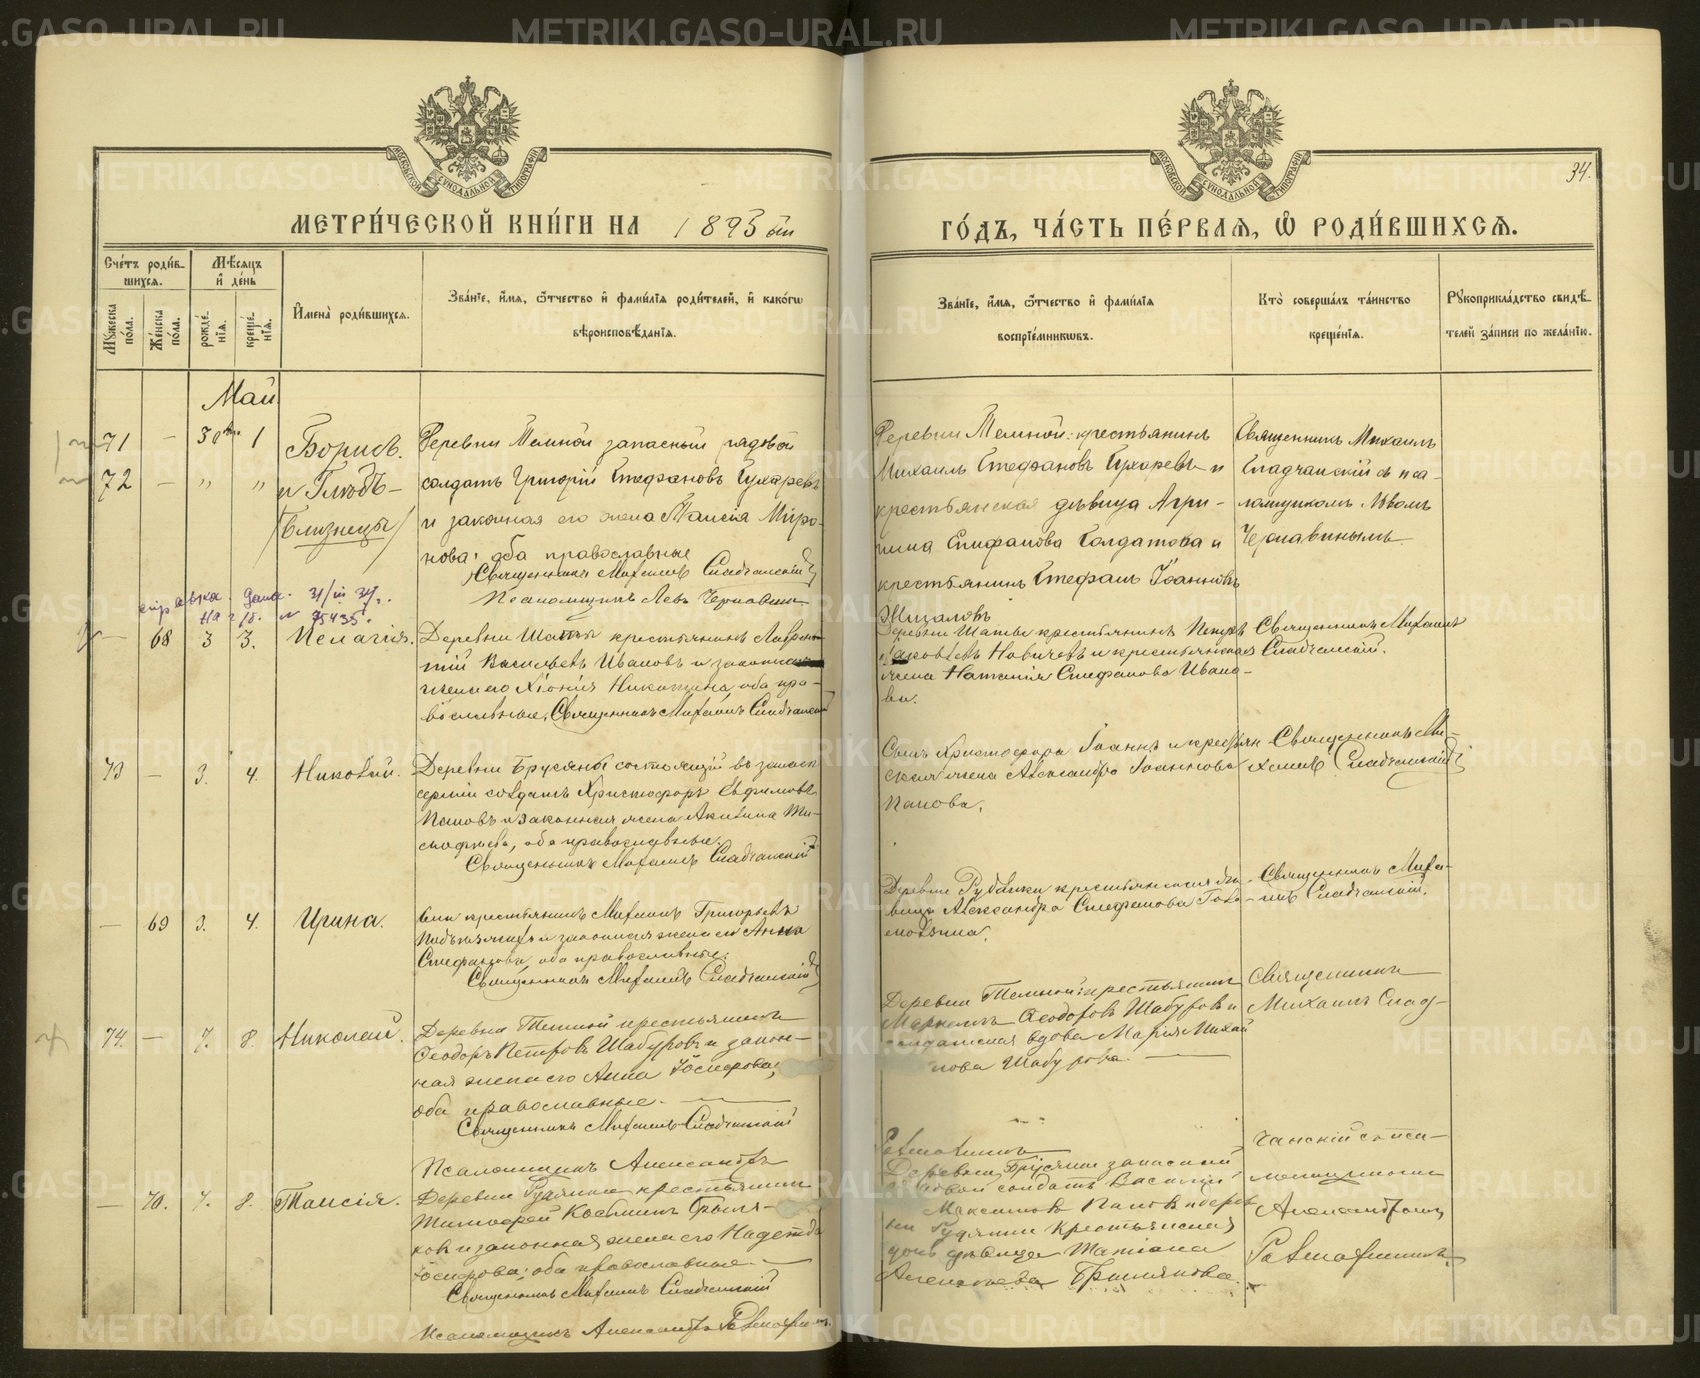 МЕТРИ́ЧЕСКОЙ КНИ́ГИ НА 1893 ой
ГО́ДЪ, ЧА́СТЬ ПЕ́РВАЯ, Ѡ҆ РОДИ́ВШИХСѦ.
34.
Сче́тъ роди́в-
шихся.
Мѣ́сяцъ
и҆ де́нь
Му́жеска по́ла.
Же́нска по́ла.
рожде́нїя.
креще́нїя.
И҆мена̀ роди́вшихся.
Зва́нїе, и҆́мя, ѻ҆́тчество и҆ фами́лїя роди́телей, и҆ како́гѡ
вѣроисповѣ́данїя.
Зва́нїе, и҆́мя, ѻ҆́тчество и҆ фами́лїя
воспрїе́мникѡвъ.
Кто̀ соверша́лъ та́инство
креще́нїя.
Рꙋкоприкла́дство свидѣ́-
телей за́писи по жела́нїю.
Май
71 — 30 Апр. 1 Борисъ.
72 — " " и Глѣбъ —
/Близнецы/
Деревни Темной запасный рядовой
солдатъ Григорій Стефановъ Сухаревъ
и законная его жена Таисія Миро-
нова; оба православные
Священникъ Михаилъ Сладчанскій
Псаломщикъ Левъ Чернавинъ
Деревни Темной: крестьянинъ
Михаилъ Стефановъ Сухаревъ и
крестьянская дѣвица Агри-
пина Епифанова Солдатова и
крестьянинъ Стефанъ Іоанновъ
Жигаловъ
Священникъ Михаилъ
Сладчанскій съ пса-
ломщикомъ Львомъ
Чернавинымъ.
справка дана. 31/III 37г.
№ 95435.
— 68 3 3. Пелагія.
Деревни Шатвы крестьянинъ Лаврен-
тій Васильевъ Ивановъ и законная
жена его Хіонія Никитина оба пра-
вославные, Священникъ Михаилъ Сладчанскій
Деревни Шатвы крестьянинъ Петръ
Яковлевъ Новичевъ и крестьянская
жена Наталія Стефанова Ивано-
ва.
Священникъ Михаилъ
Сладчанскій.
73 — 3. 4. Николай.
Деревни Брусяны состоящій въ запасѣ
арміи солдатъ Христофоръ Евфимовъ
Поповъ и законная жена Акилина Ти-
мофеева, оба православные.
Священникъ Михаилъ Сладчанскій
Сынъ Христофора Іоаннъ и крестьян-
ская жена Александра Іоаннова
Попова.
Священникъ Ми-
хаилъ Сладчанскій
— 69 3. 4. Ирина.
крестьянинъ Михаилъ Григорьевъ
и законная жена его Анна
Стефанова, оба православные.
Священникъ Михаилъ Сладчанскій
Деревни крестьянская дѣ-
вица Александра Стефанова
Священникъ Миха-
илъ Сладчанскій.
74. — 7. 8. Николай.
Деревни Темной крестьянинъ
Ѳеодоръ Петровъ Шабуровъ и закон-
ная жена его Анна Іосифова;
оба православные. —
Священникъ Михаилъ Сладчанскій
Псаломщикъ Александръ
Деревни Темной: крестьянинъ
Маркеллъ Ѳеодоровъ Шабуровъ и
солдатская вдова Марія Михай
лова Шабурова. —
Священникъ
Михаилъ Слад-
чанскій съ пса-
ломщикомъ
Александромъ
— 70. 7. 8. Таисія.
Деревни крестьянинъ
Тимофей Косьминъ
ковъ и законная жена его Надежда
Іосифова; оба православные. —
Священникъ Михаилъ Сладчанскій
Псаломщикъ Александръ
Деревни Брусяны запасный
рядовой солдатъ Василій
Максимовъ Поповъ и дерев
ни крестьянская
дочь дѣвица Татіана
Алексѣева